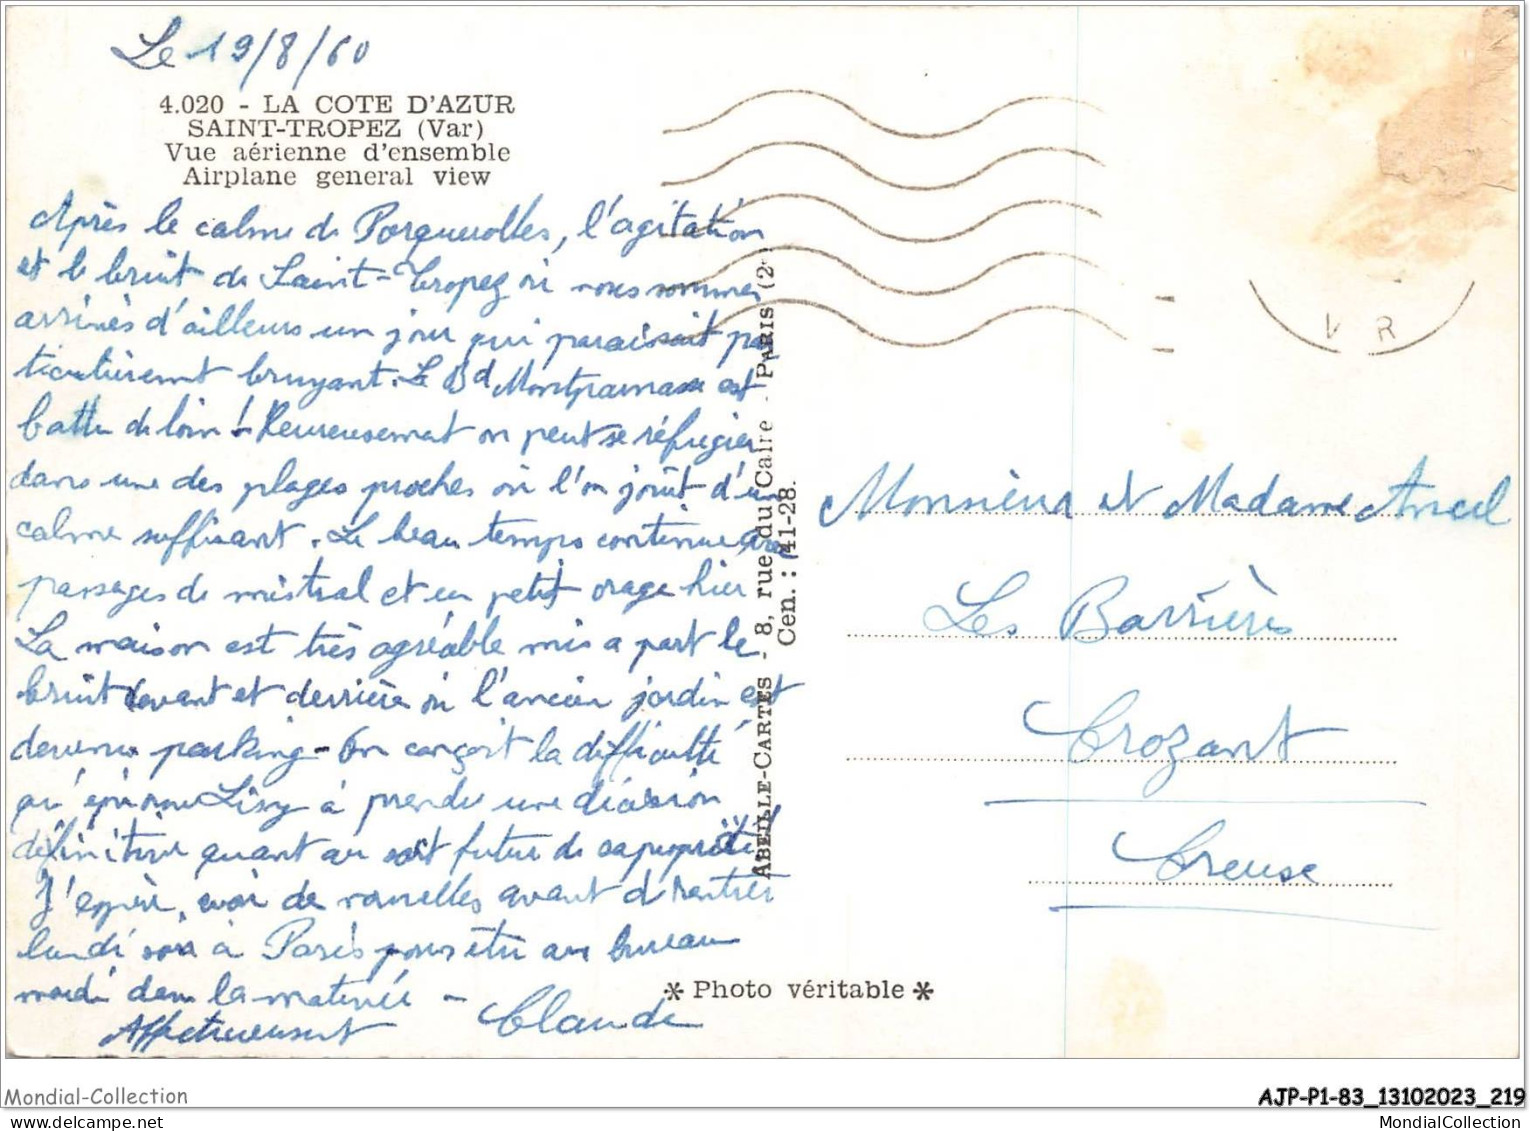 Le 19/8/60
4.020 - LA COTE D'AZUR
SAINT-TROPEZ (Var)
Vue aérienne d'ensemble
Airplane general view
Après le calme de Porquerolles, l'agitation
et le bruit de Saint-Tropez où nous sommes
arrivés d'ailleurs un jour qui paraissait par
ticulièrement bruyant. Le Bd Montparnasse est
battu de loin ! Heureusement on peut se réfugier
dans une des plages proches où l'on jouit d'un
calme suffisant. Le beau temps continue avec
passages de mistral et un petit orage hier
La maison est très agréable mis a part le
bruit devant et derrière où l'ancien jardin est
devenu parking - On conçoit la difficulté
qu'éprouve Lisy à prendre une décision
définitive quant au sort futur de sa propriété
J'espère, avoir de nouvelles avant d rentrer
lundi soir à Paris pour être au bureau
mardi dans la matinée -
Affectueusement Claude
ABEILLE-CARTES - 8, rue du Caire - PARIS (2
Cen. : 41-28.
* Photo véritable *
V R
Monsieur et Madame Ancel
Les Barrières
Crozant
Creuse
Mondial-Collection
AJP-P1-83_13102023_219
mondialcollection
MondialCollection